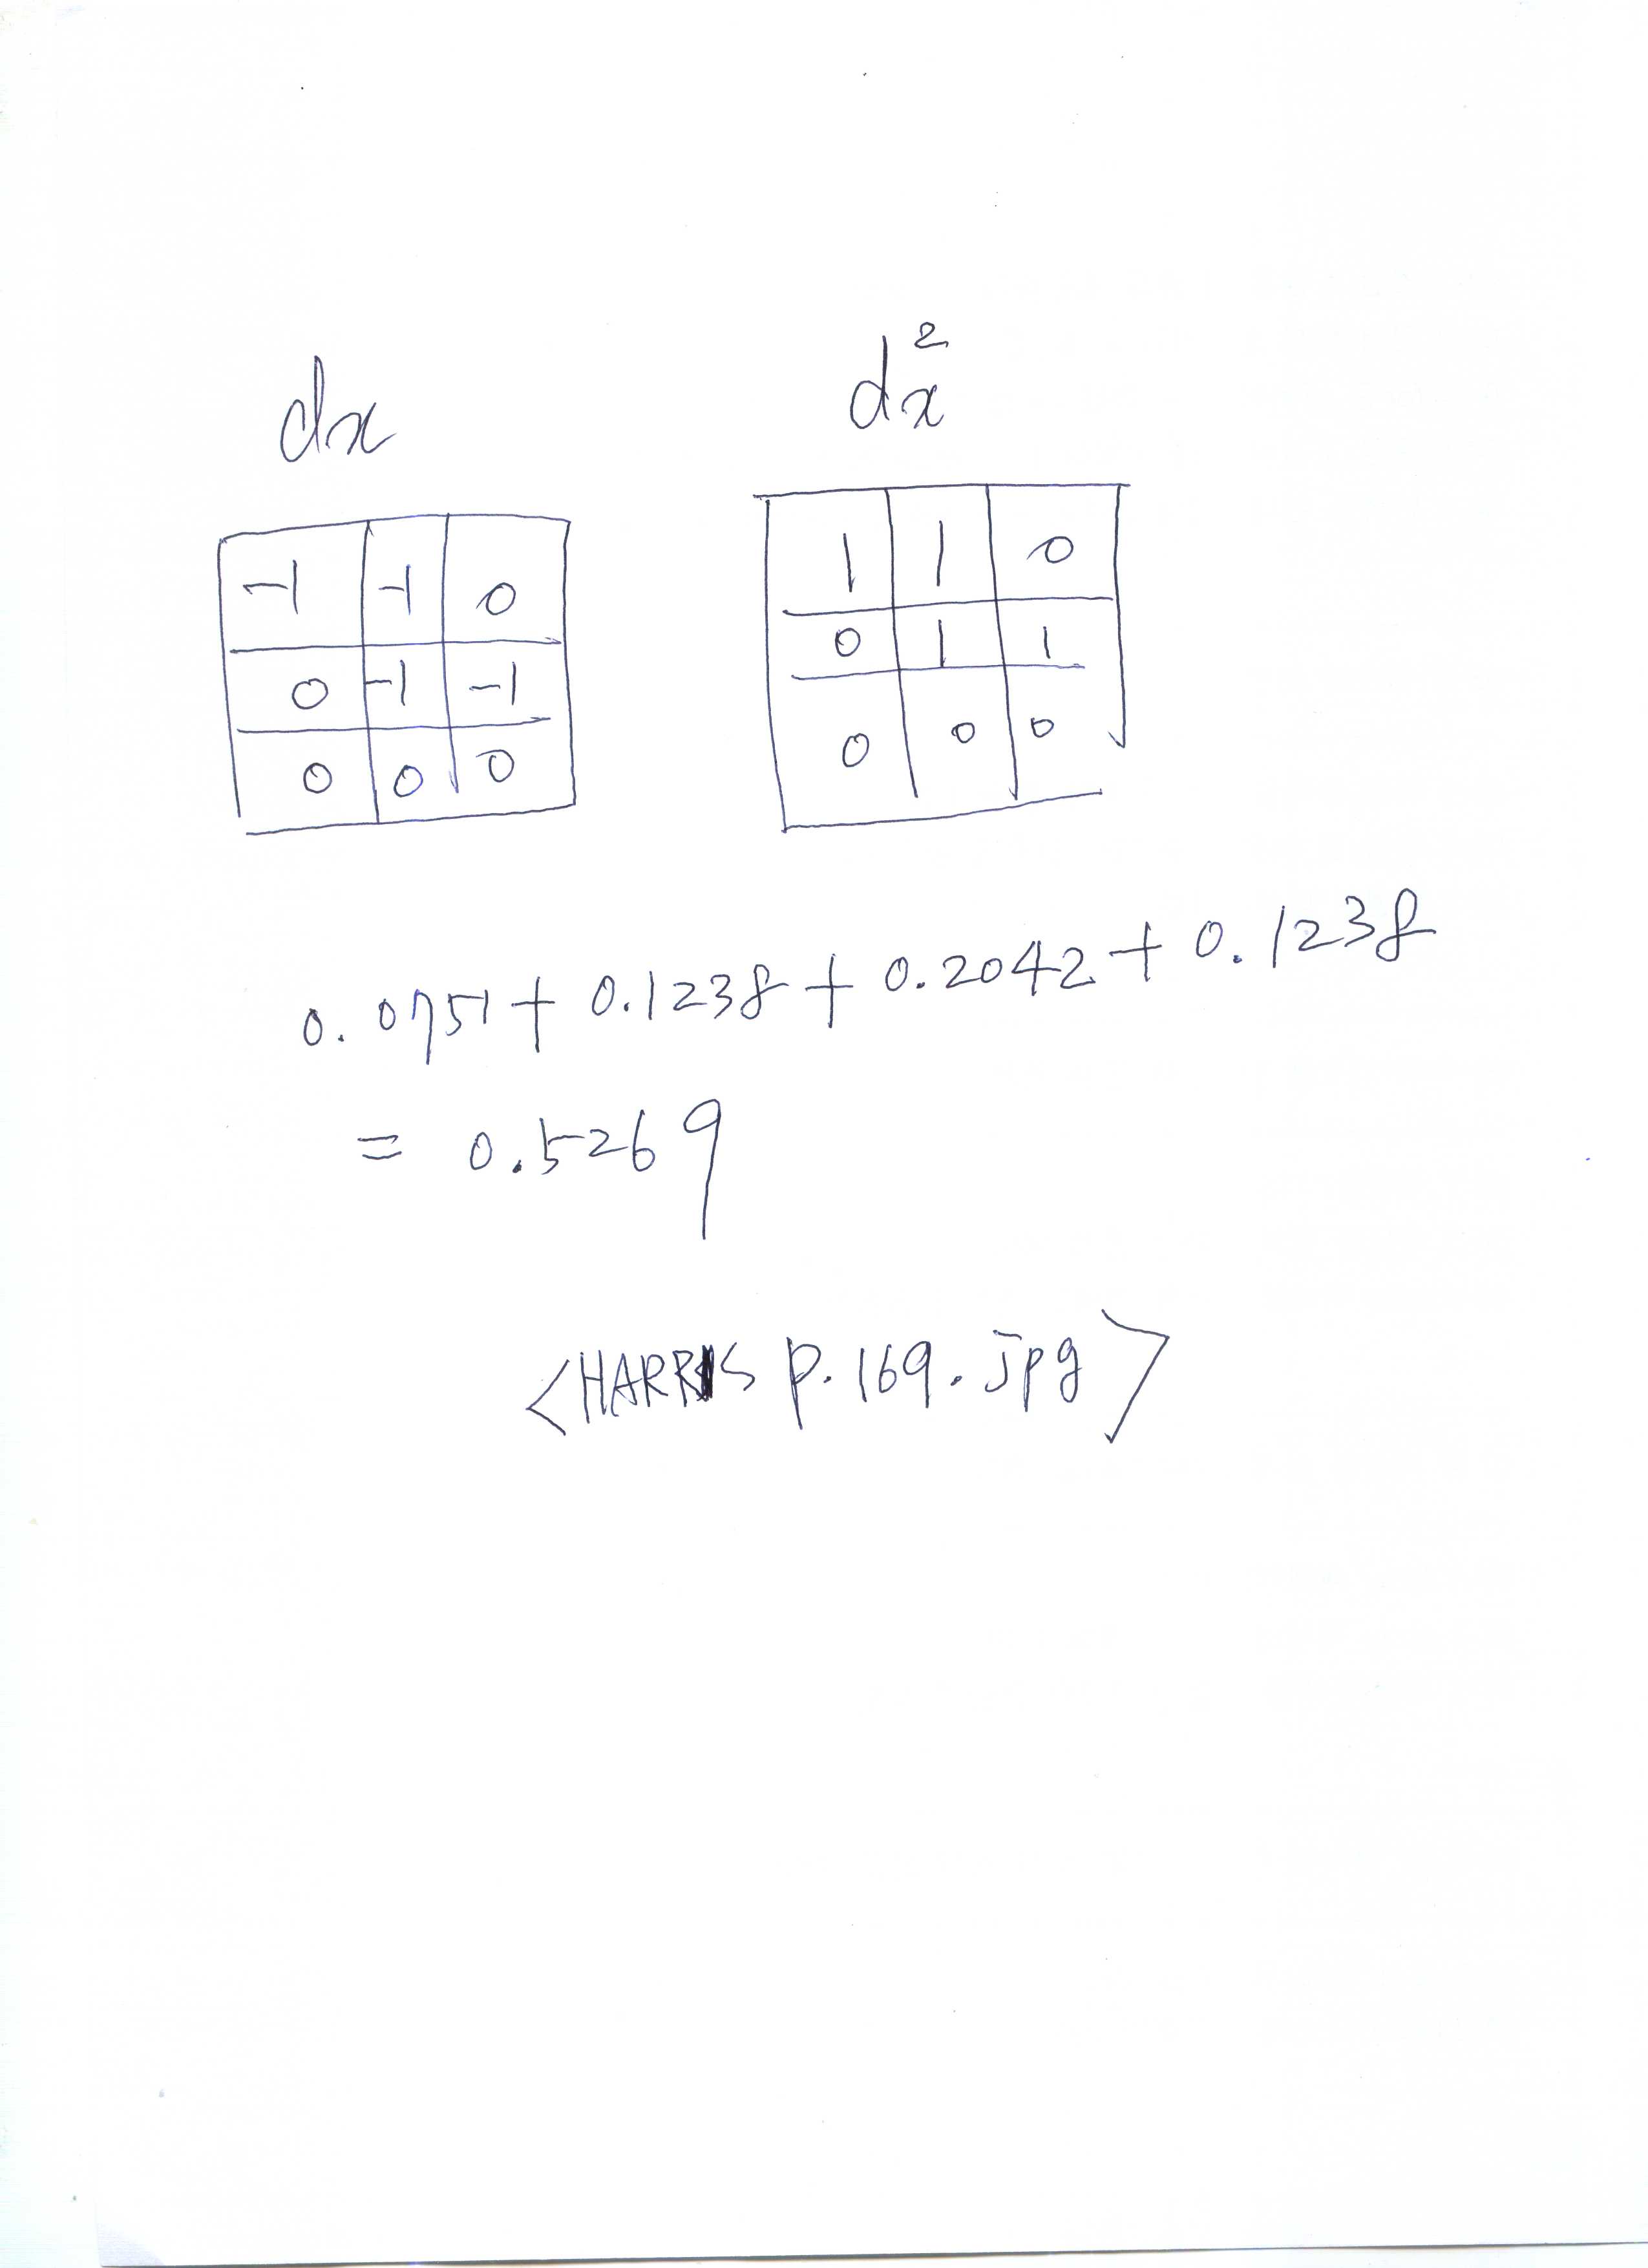 dx dx²
-1 -1 0 1 1 0
0 -1 -1 0 1 1
0 0 0 0 0 0
0.0751 + 0.1238 + 0.2042 + 0.1238
= 0.5269
<HARRIS p.169.jpg>